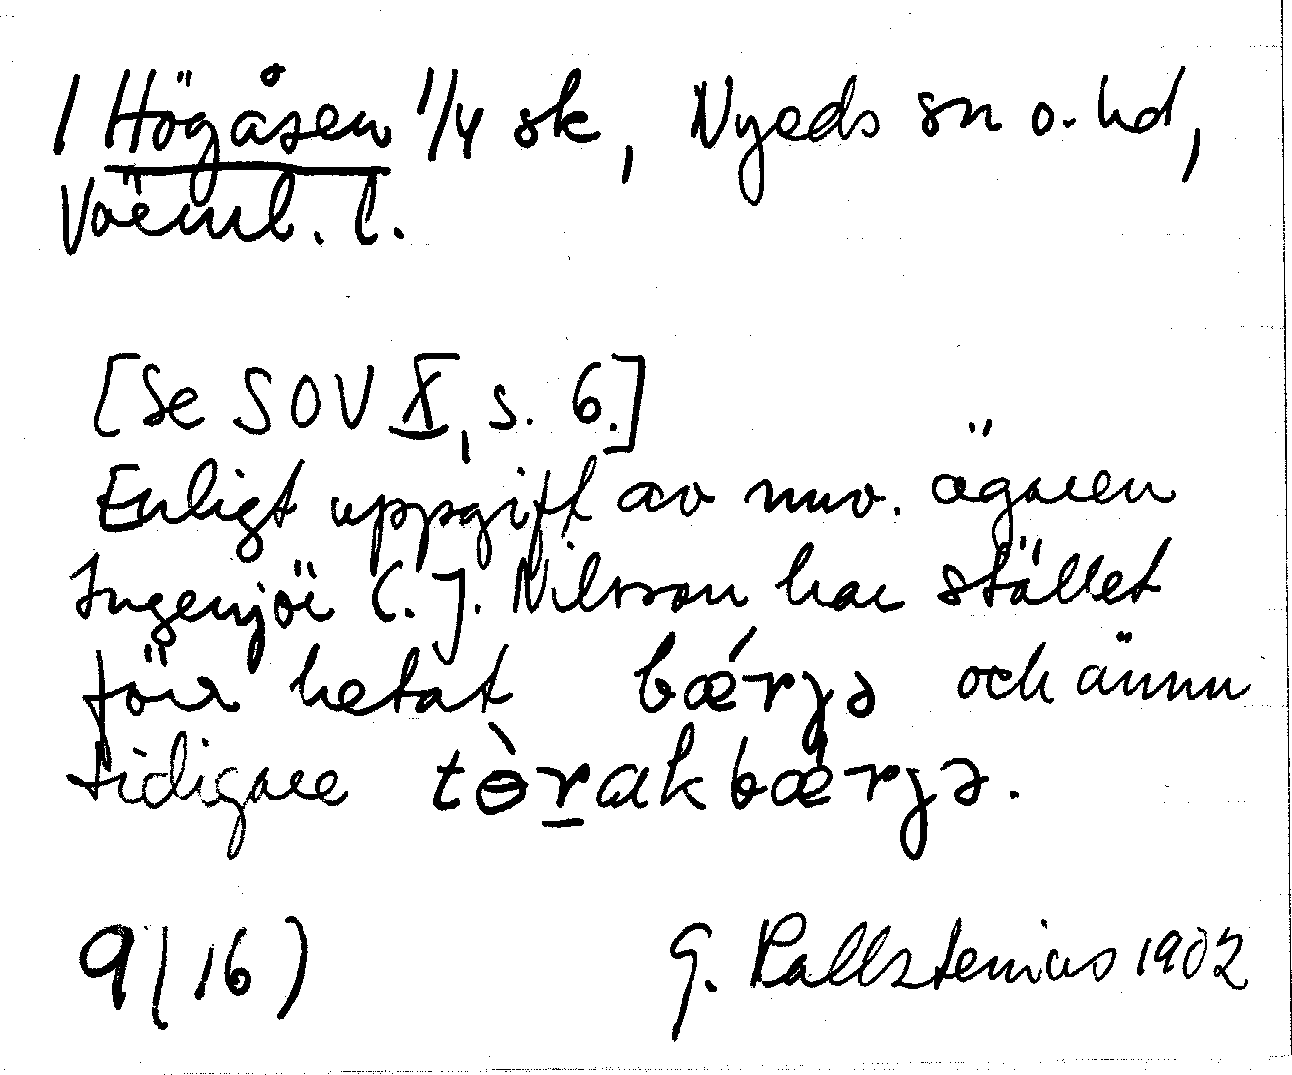 1 Högåsen 1/4 sk, Nyeds sn o. hd,
Värml. l.
[Se SOV X, s. 6.]
Enligt uppgift av nuv. ägaren
Ingenjör C. J. Nilsson har stället
förr hetat bǽrjə och ännu
tidigare tɵ̀rakbærjə.
9(16) G. Kallstenius 1902